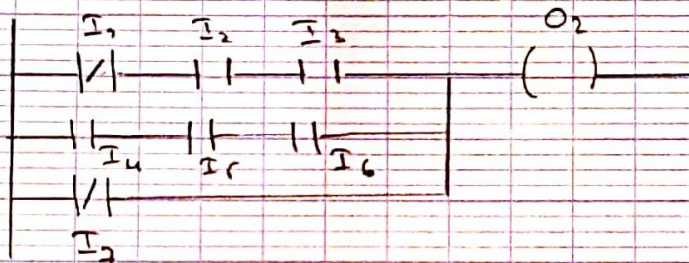 I₁ I₂ I₃ O₂
I₄ I₅ I₆
I₇